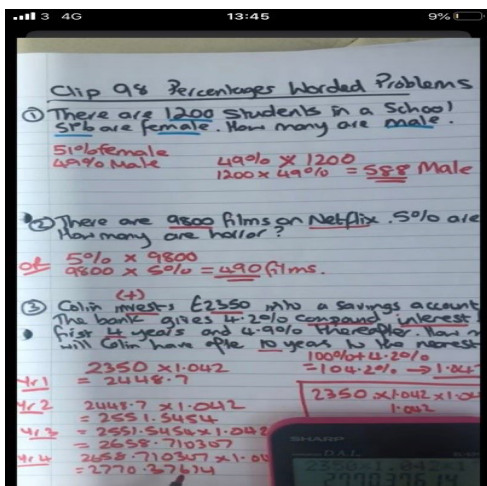 3 4G 13:45 9%
Clip 98 Percentages Worded Problems
① There are 1200 students in a School
51% are female. How many are male.
51% female
49% Male
49% × 1200
1200 × 49% = 588 Male
② There are 9800 films on Netflix. 5% are
How many are horror?
or 5% × 9800
9800 × 5% = 490 films.
(+)
③ Colin invests £2350 into a savings account
The bank gives 4.2% compound interest
first 4 years and 4.9% thereafter. How
will Colin have after 10 years to the nearest
100% + 4.2%
= 104.2% →
Yr 1 2350 × 1.042
= 2448.7
2350 × 1.042 ×
1.042
Yr 2 2448.7 × 1.042
= 2551.5454
Yr 3 = 2551.5454 × 1.042
= 2658.710307
Yr 4 2658.710307 ×
= 2770.37614
SHARP
D.A.L.
2350×1.042×1
2770.37614